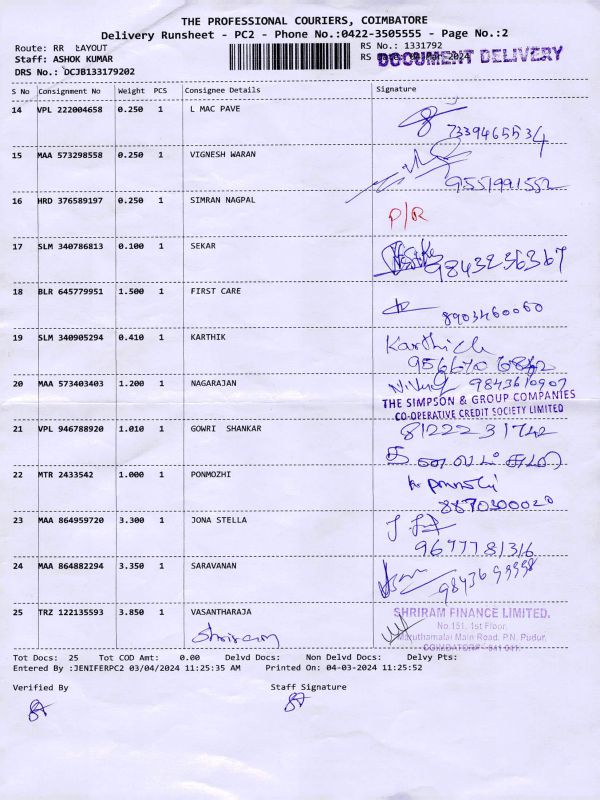 THE PROFESSIONAL COURIERS, COIMBATORE
Delivery Runsheet - PC2 - Phone No.:0422-3505555 - Page No.:2
Route: RR LAYOUT
RS No.: 1331792
Staff: ASHOK KUMAR
RS
2024
DOCUMENT DELIVERY
DRS No.: DCJB133179202
S No Consignment No Weight PCS Consignee Details Signature
14 VPL 222004658 0.250 1 L MAC PAVE
7339465534
15 MAA 573298558 0.250 1 VIGNESH WARAN
9551991552
16 HRD 376589197 0.250 1 SIMRAN NAGPAL
P/R
17 SLM 340786813 0.100 1 SEKAR
9843236367
18 BLR 645779951 1.500 1 FIRST CARE
8903460060
19 SLM 340905294 0.410 1 KARTHIK
Karthick
20 MAA 573403403 1.200 1 NAGARAJAN
9843610907
THE SIMPSON & GROUP COMPANIES
CO-OPERATIVE CREDIT SOCIETY LIMITED
21 VPL 946788920 1.010 1 GOWRI SHANKAR
8122231742
22 MTR 2433542 1.000 1 PONMOZHI
8870300020
23 MAA 864959720 3.300 1 JONA STELLA
9677781316
24 MAA 864882294 3.350 1 SARAVANAN
25 TRZ 122135593 3.850 1 VASANTHARAJA
Shriram
SHRIRAM FINANCE LIMITED.
No.151, 1st Floor,
Maruthamalai Main Road, P.N. Pudur,
COIMBATORE - 641 041.
Tot Docs: 25 Tot COD Amt: 0.00 Delvd Docs: Non Delvd Docs: Delvy Pts:
Entered By :JENIFERPC2 03/04/2024 11:25:35 AM Printed On: 04-03-2024 11:25:52
Verified By
Staff Signature